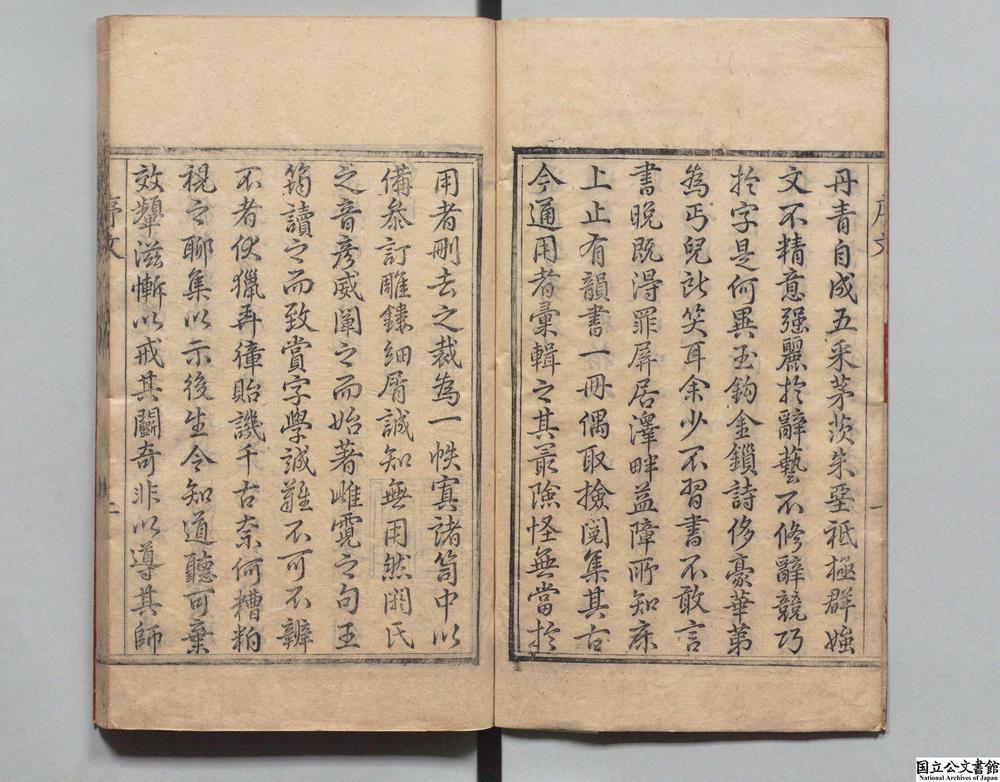 序文
一
丹青自成五采茅茨朱堊祗極群媸
文不精意强麗於辭藝不修辭競巧
於字是何異玉鈎金鎖詩侈豪華第
為丐兒訿笑耳余少不習書不敢言
書晚既淂罪屏居澤畔益障所知床
上止有韻書一冊偶取撿閱集其古
今通用者彙輯之其冣險怪無當於
用者刪去之裁為一帙寘諸笥中以
備叅訂雕鏤細屑誠知無用然閎氏
之音彥威闡之而始著雌霓之句王
筠讀之而致賞字學誠難不可不辨
不者伏獵弄獐貽譏千古奈何糟粕
視之聊集以示後生令知道聽可棄
效顰滋慚以戒其鬬奇非以導其師
序文
二
国立公文書館
National Archives of Japan